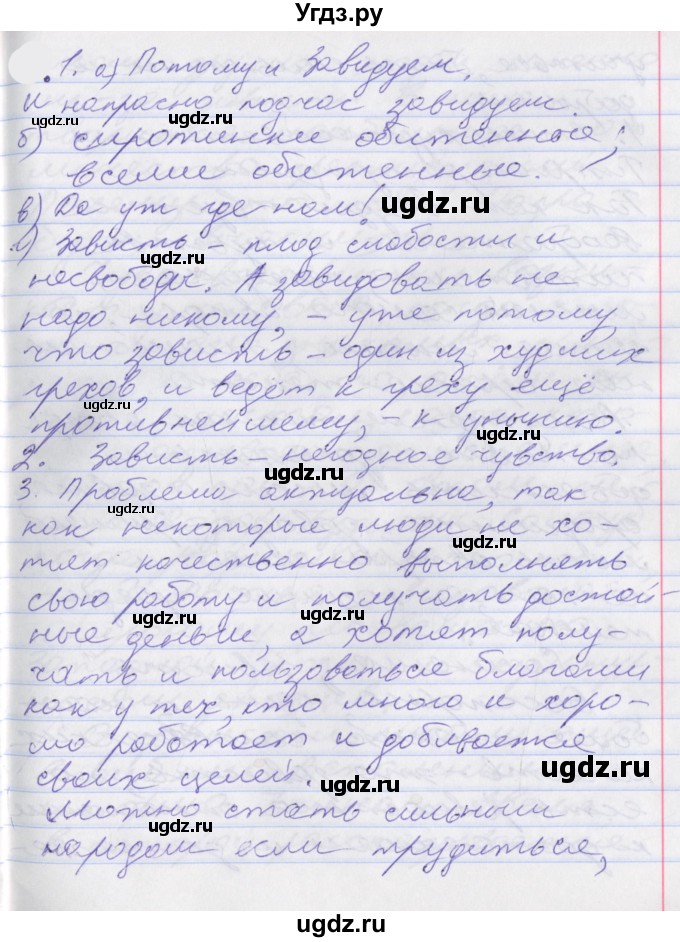 Угдз.ру
1. а) Потому и завидуем,
и напрасно подчас завидуем.
ugdz.ru
ugdz.ru
б) сыротинские обиженные;
всеми обиженные.
ugdz.ru
в) Да уж где нам!
ugdz.ru
г) Зависть – плод слабости и
несвободы. А завидовать не
надо никому, – уже потому,
что зависть – один из худших
грехов, и ведёт к греху ещё
ugdz.ru
противнейшему, – к унынию.
ugdz.ru
2. Зависть – негодное чувство.
ugdz.ru
3. Проблема актуальна, так
ugdz.ru
как некоторые люди не хо-
ugdz.ru
тят качественно выполнять
свою работу и получать достой-
ugdz.ru
ные деньги, а хотят полу-
чать и пользоваться благами
как у тех, кто много и хоро-
шо работает и добивается
ugdz.ru
своих целей.
Можно стать сильным
ugdz.ru
народом если трудиться,
ugdz.ru